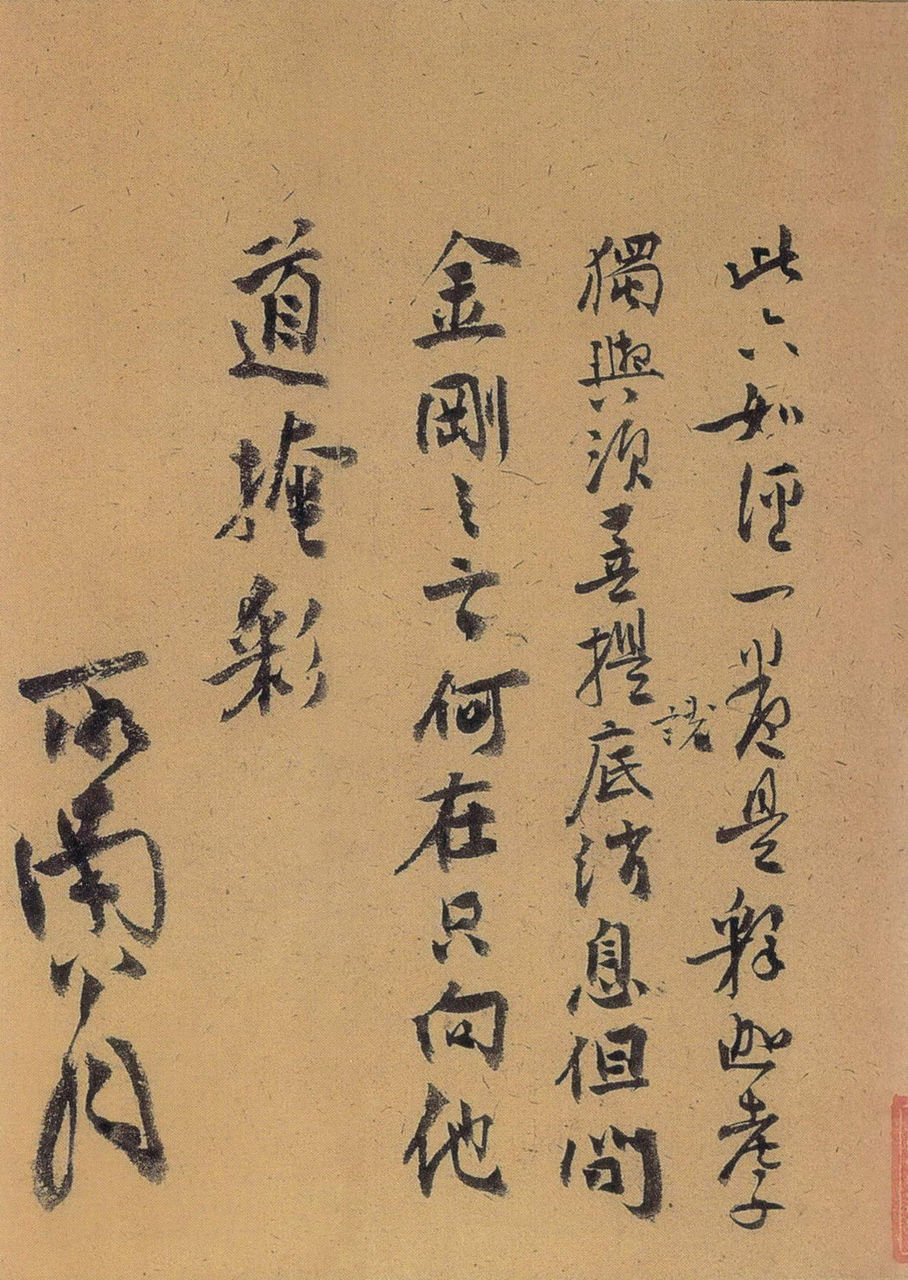 此六如經一卷是釋迦老子
獨與須菩提底消息但問
金剛之何在只向他
道掩彩